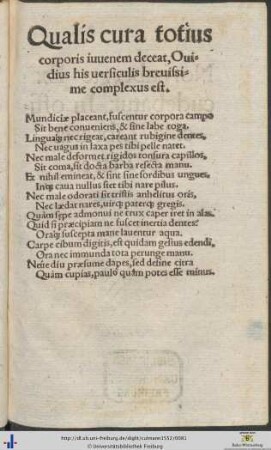 Qualis cura totius
corporis iuuenem deceat, Oui-
dius his uersiculis breuissi-
me complexus est.
Mundiciæ placeant, fuscentur corpora campo
Sit bene conueniens, & sine labe toga.
Linguaq; ne rigeat, careant rubigine dentes,
Nec uagus in laxa pes tibi pelle natet.
Nec male deformet rigidos tonsura capillos,
Sit coma, sit docta barba resecta manu.
Et nihil emineant, & sint sine sordibus ungues,
Inq; caua nullus stet tibi nare pilus.
Nec male odorati sit tristis anhelitus oris,
Nec lædat nares, uirq; paterq; gregis.
Quàm sępe admonui ne trux caper iret in alas.
Quid si præcipiam ne fuscet inertia dentes?
Oraq; suscepta mane lauentur aqua.
Carpe cibum digitis, est quidam gestus edendi,
Ora nec immunda tota perunge manu.
Néue diu præsume dapes, sed desine citra
Quàm cupias, paulò quàm potes esse minus.
http://dl.ub.uni-freiburg.de/diglit/vulmann1552/0081
© Universitätsbibliothek Freiburg